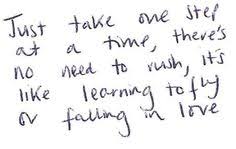 Just take one step
at a time, there's
no need to rush, it's
like learning to fly
or falling in love